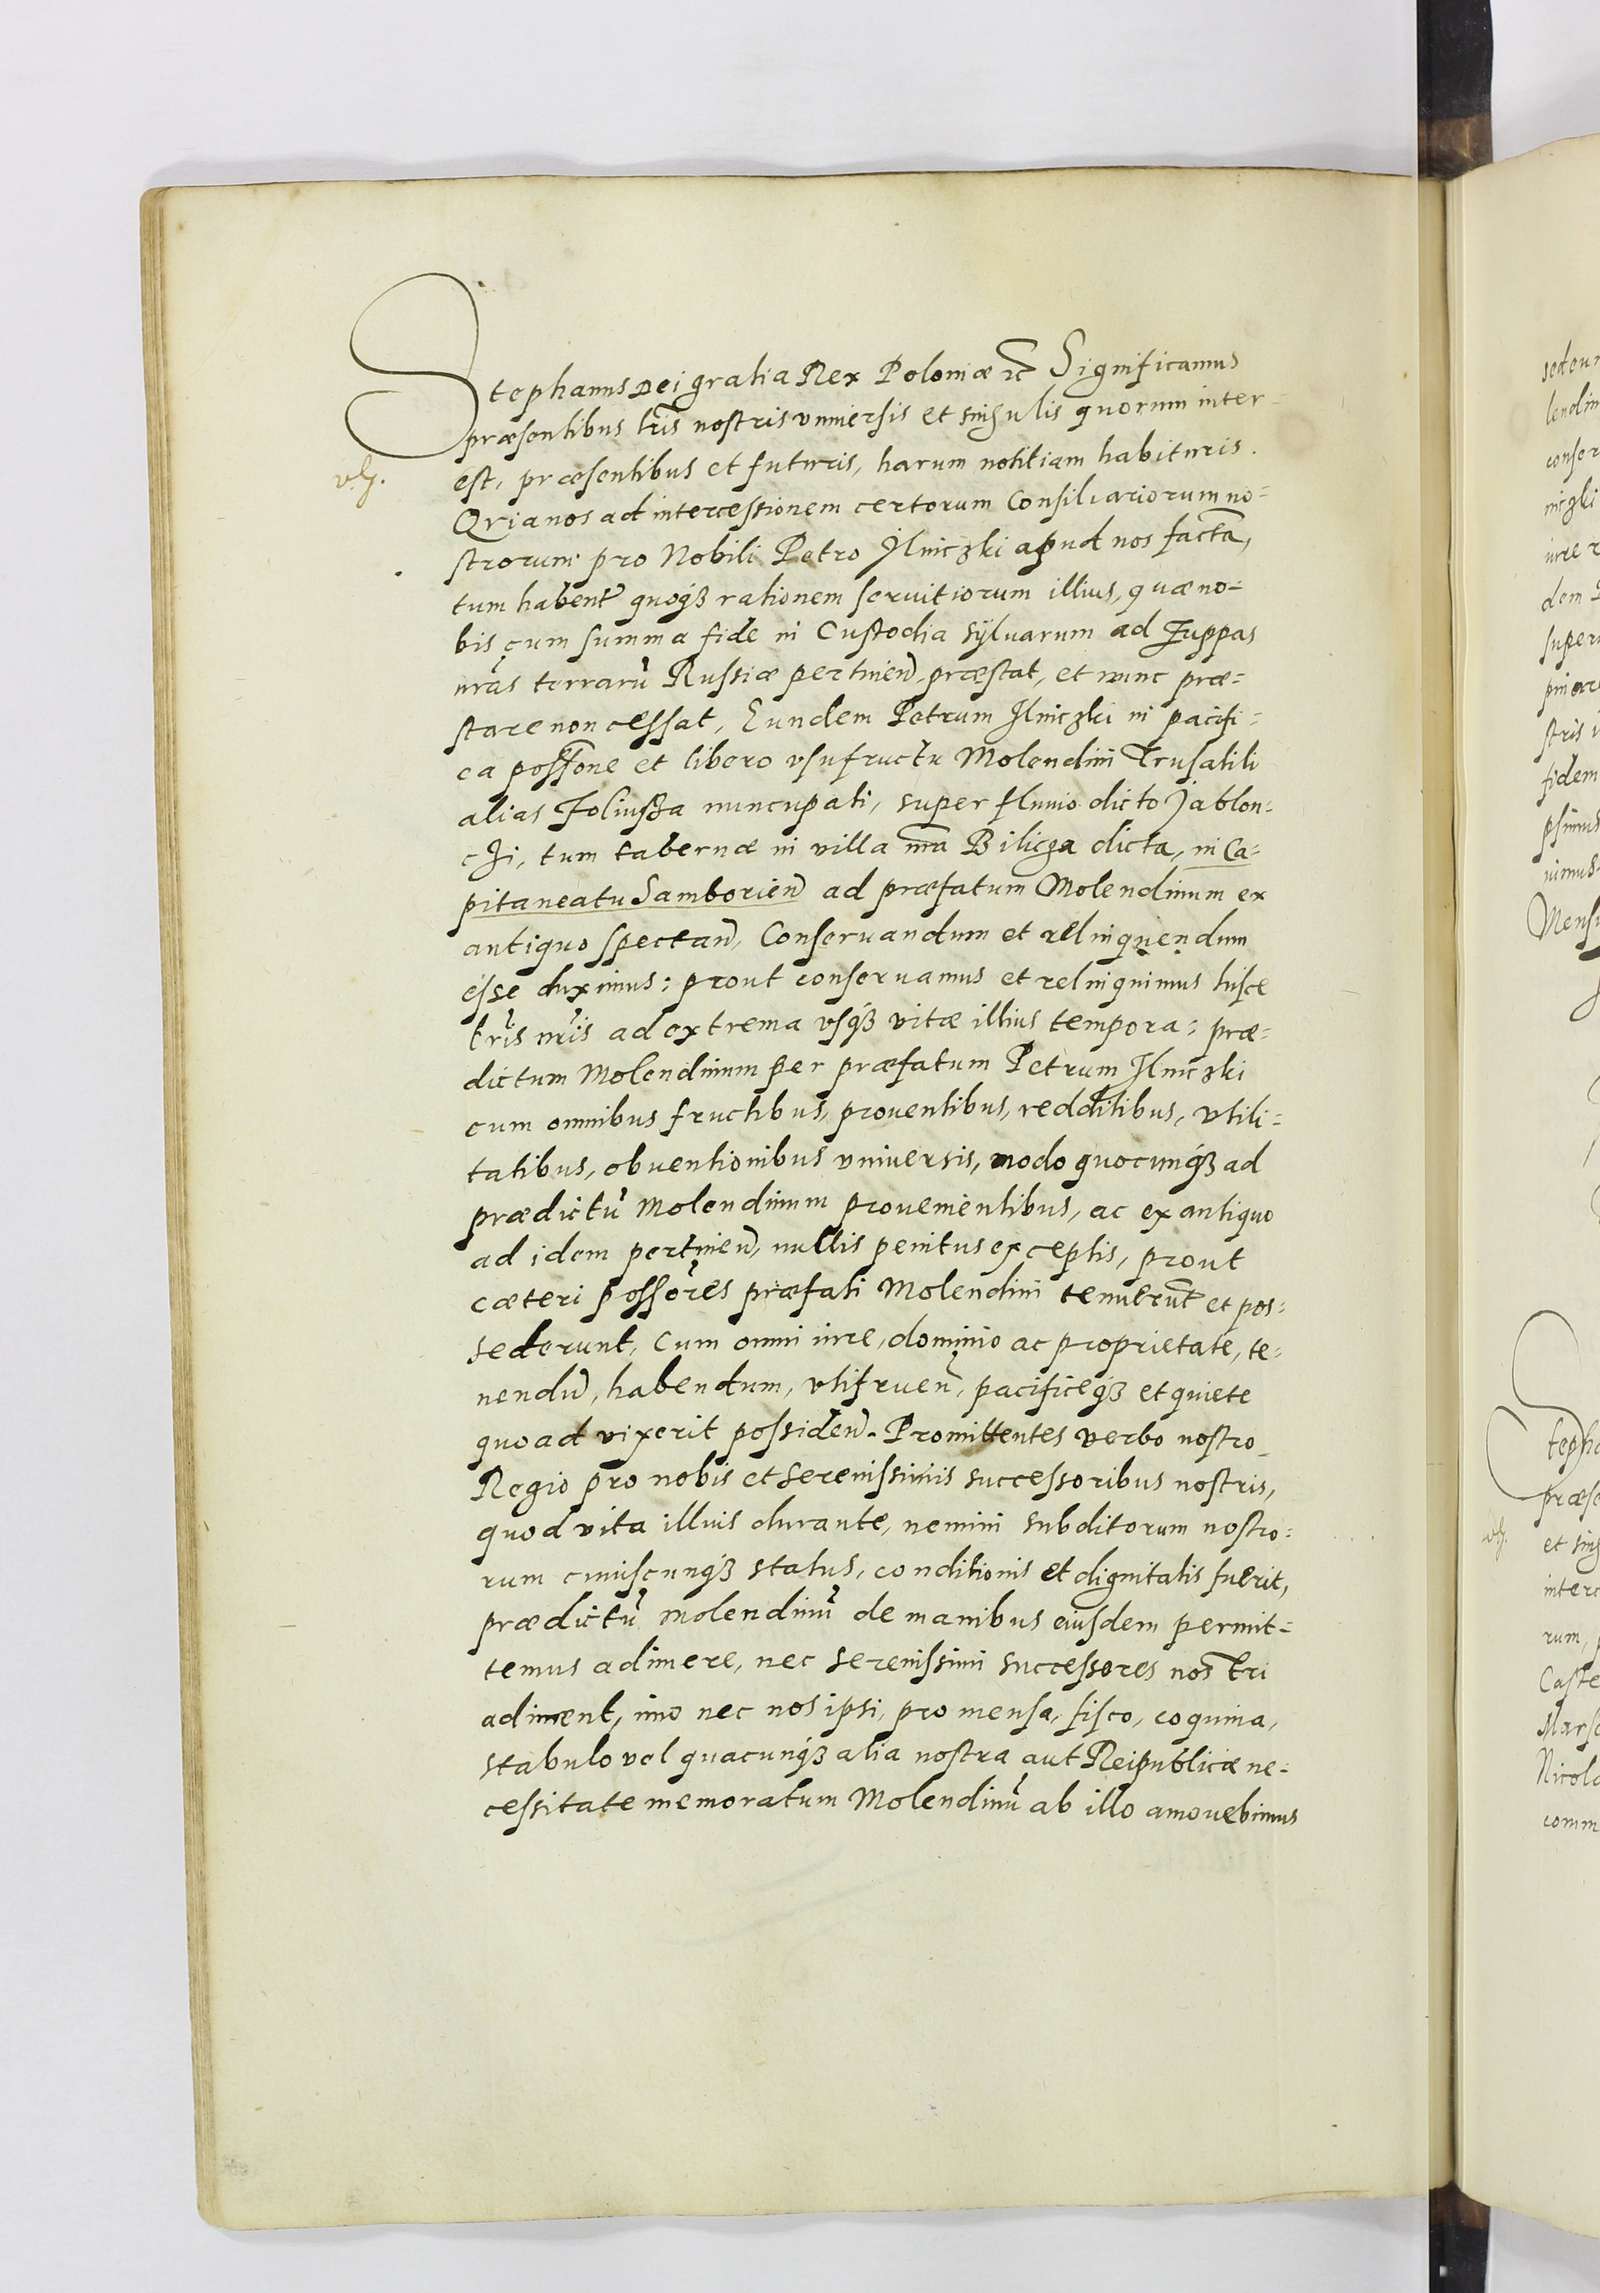 Stephanus Dei gratia Rex Poloniæ etc Significamus
præsentibus lris nostris vniuersis et singulis quorum inter-
est, præsentibus et futuris, harum notitiam habituris.
Qria nos ad intercessionem certorum Consiliariorum no-
strorum pro Nobili Petro Jlniczki apud nos facta,
tum haben̄t quoqȝ rationem seruitiorum illius, quæ no-
bis cum summa fide in Custodia syluarum ad Zuppas
nrãs terrarũ Russiæ pertinen̄. præstat, et nunc præ-
stare non cessat, Eundem Petrum Jlniczki in pacifi-
ca possone et libero vsufructu Molendini Trusatili
alias Foliusza nuncupati, super fluuio dicto Jablon-
czi, tum tabernæ in villa nra Bilicza dicta, in Ca-
pitaneatu Samborien̄ ad præfatum Molendinum ex
antiquo spectan̄, Conseruandum et relinquendum
esse duximus: prout conseruamus et relinquimus hisce
lris nris ad extrema vsqȝ vitæ illius tempora: præ-
dictum Molendinum per præfatum Petrum Jlniczki
cum omnibus fructibus, prouentibus, redditibus, vtili-
tatibus, obuentionibus vniuersis, modo quocunqȝ ad
prædictũ Molendinum prouenientibus, ac ex antiquo
ad idem pertinen̄, nullis penitus exceptis, prout
cæteri possores præfati Molendini tenuerunt et pos-
sederunt, Cum omni iure, dominio ac proprietate, te-
nendũ, habendum, vtifruen̄, pacificeqȝ et quiete
quoad vixerit possiden̄. Promittentes verbo nostro
Regio pro nobis et Serenissimis successoribus nostris,
quod vita illius durante, nemini subditorum nostro-
rum cuiuscunqȝ status, conditionis et dignitatis fuerit,
prædictũ Molendinũ de manibus eiusdem permit-
temus adimere, nec Serenissimi successores nostri
adiment, imo nec nos ipsi, pro mensa, fisco, coquina,
stabulo vel quacunqȝ alia nostra aut Reipublicæ ne-
cessitate memoratum Molendinũ ab illo amouebimus